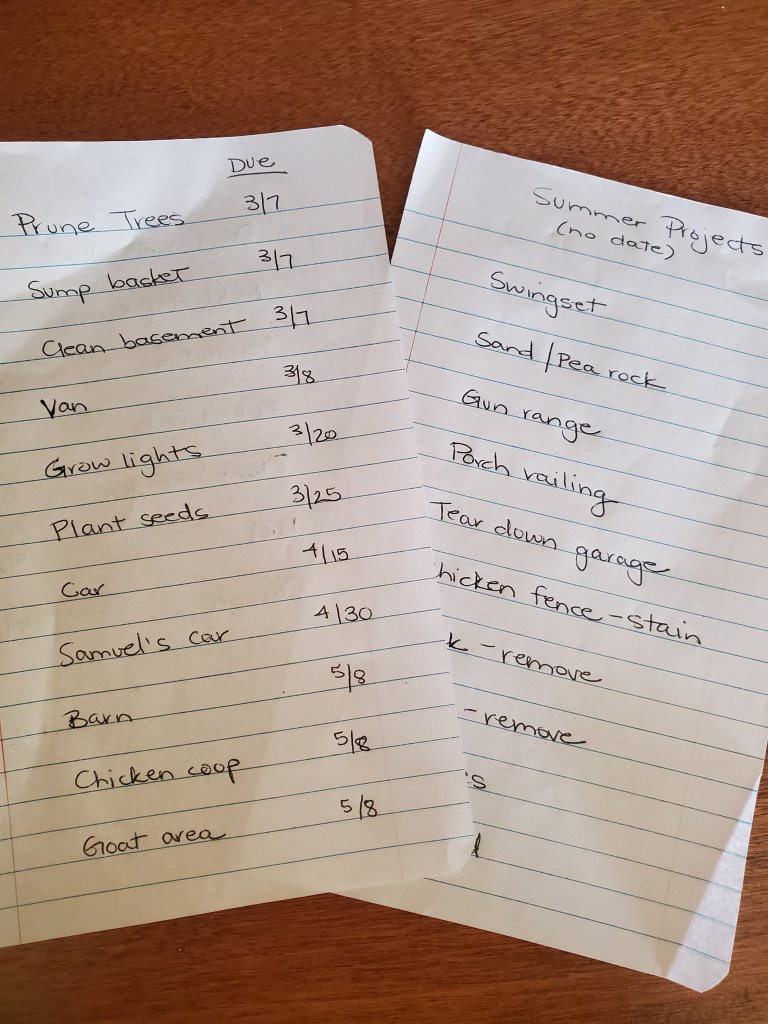 Due
Prune Trees 3/7
Sump basket 3/7
Clean basement 3/7
Van 3/8
Grow lights 3/20
Plant seeds 3/25
Car 4/15
Samuel's car 4/30
Barn 5/8
Chicken coop 5/8
Goat area 5/8
Summer Projects
(no date)
Swingset
Sand/Pea rock
Gun range
Porch railing
Tear down garage
hicken fence - stain
k - remove
- remove
's